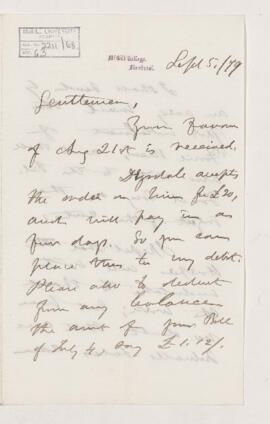 McGill College,
Montreal.
Sept 5./79
Gentlemen,
Your favour
of Aug 21st is received.
Drysdale accepts
the order on him for £20,
and will pay in a
few days. So you can
place this to my debt.
Please also to deduct
from any balances
the amt of your Bill
of July 4, say £1.12/.